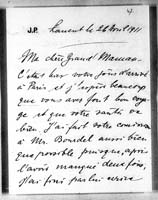 4
J.P. Laurent le 26 Avril 1911
Ma chère Grand Maman
C'était hier votre jour d'arrivée
à Paris et j'espère beaucoup
que vous avez fait bon voya-
ge et que votre santé va
bien. J'ai fait votre commis
à Mr. Bourdel aussi bien
que possible puisque, après
l'avoir manqué deux fois,
j'ai fini par lui écrire